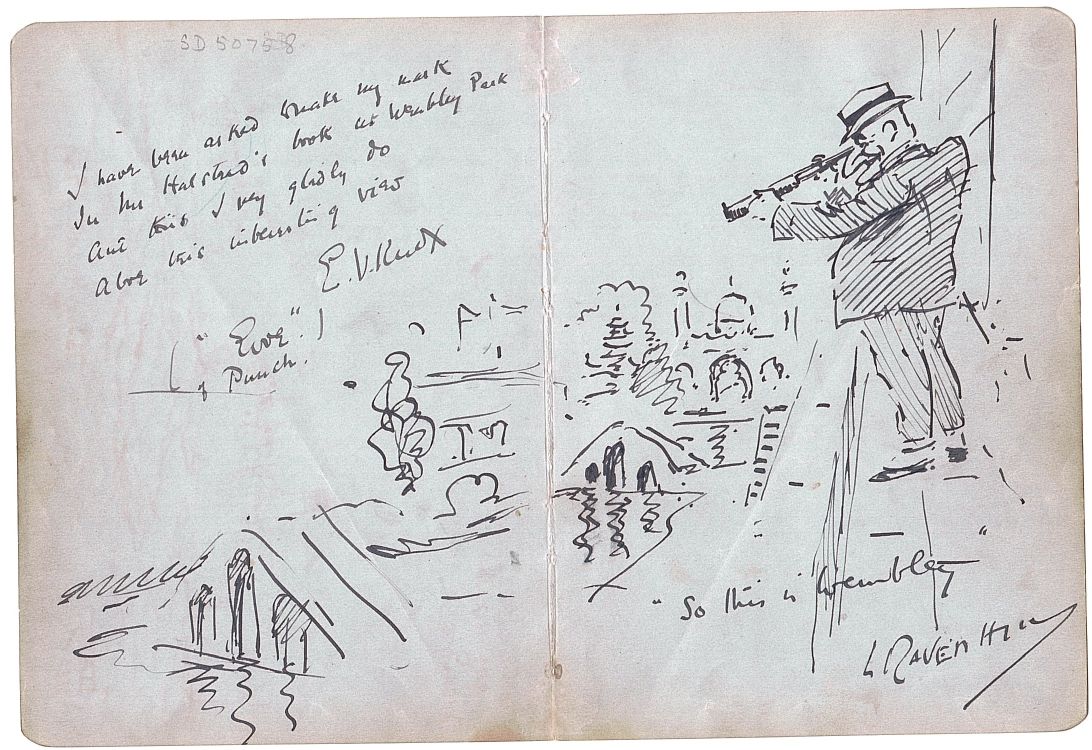 SD 50758
I have been asked make my mark
In Mr Halstead's book at Wembley Park
And this I very gladly do
Above this interesting view
E. V. Knox
"Evoe"
of Punch.
"So this is Wembley"
L RAVEN HILL